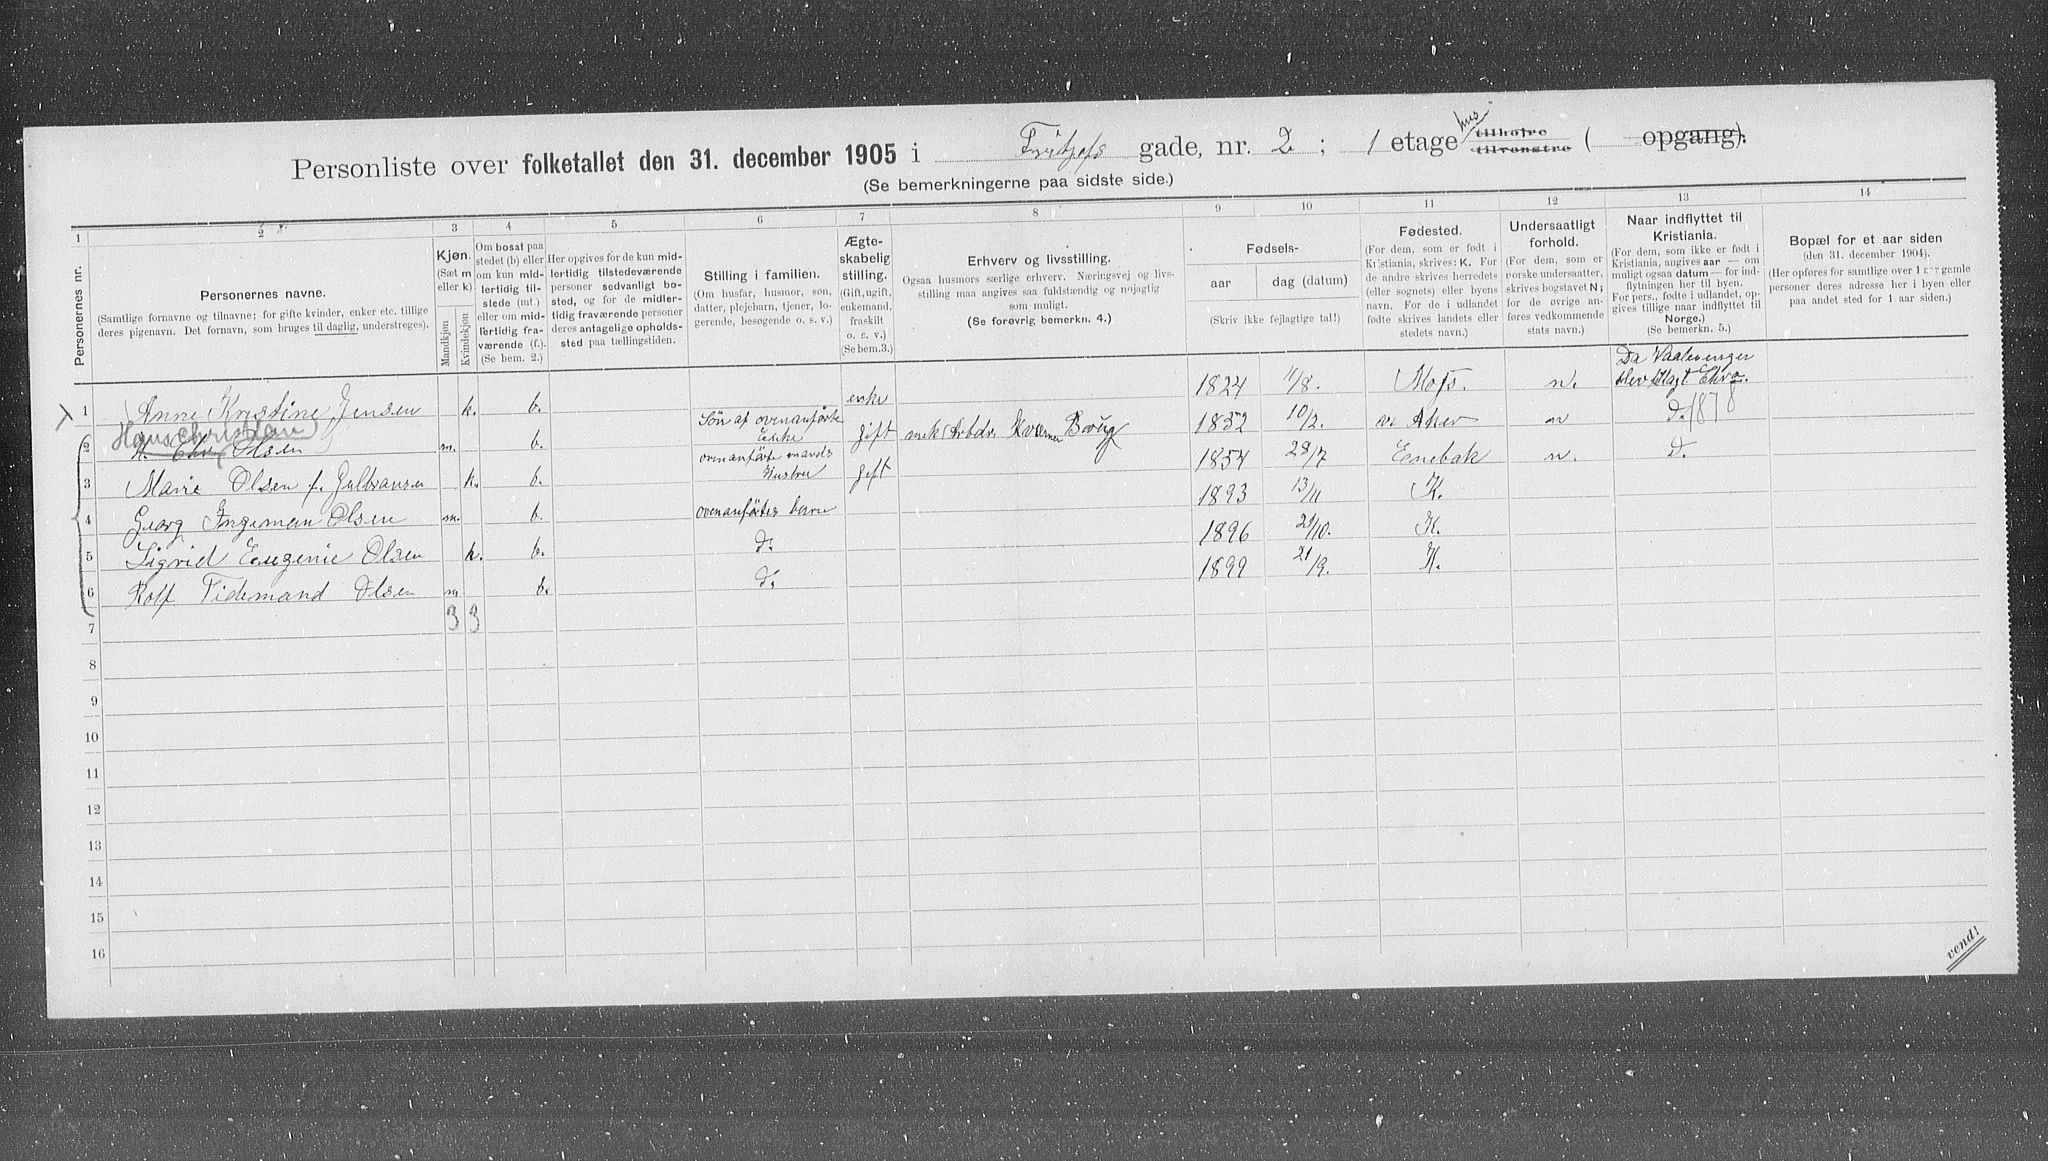 Personliste over folketallet den 31. december 1905 i Fritjofs gade, nr. 2 ; 1 etage hus tilhøjre tilvenstre ( opgang).
(Se bemerkningerne paa sidste side.)
1 2 3 4 5 6 7 8 9 10 11 12 13 14
Personernes nr.
Personernes navne.
(Samtlige fornavne og tilnavne; for gifte kvinder, enker etc. tillige
deres pigenavn. Det fornavn, som bruges til daglig, understreges).
Kjøn.
(Sæt m
eller k)
Mandkjøn
Kvindekjøn
Om bosat paa
stedet (b) eller
om kun mid-
lertidig til-
stede (mt.)
eller om mid-
lertidig fra-
værende (f.).
(Se bem. 2.)
Her opgives for de kun mid-
lertidig tilstedeværende
personer sedvanligt bo-
sted, og for de midler-
tidig fraværende personer
deres antagelige opholds-
sted paa tællingstiden.
Stilling i familien.
(Om husfar, husmor, søn,
datter, plejebarn, tjener, lo-
gerende, besøgende o. s. v.)
Ægte-
skabelig
stilling.
(Gift, ugift,
enkemand,
fraskilt
o. s. v.)
(Se bem.3.)
Erhverv og livsstilling.
Ogsaa husmors særlige erhverv. Næringsvej og livs-
stilling maa angives saa fuldstændig og nøjagtig
som muligt.
(Se forøvrig bemerkn. 4.)
Fødsels-
aar dag (datum)
(Skriv ikke fejlagtige tal!)
Fødested.
(For dem, som er født i
Kristiania, skrives: K. For
de andre skrives herredets
(eller sognets) eller byens
navn. For de i udlandet
fødte skrives landets eller
stedets navn.)
Undersaatligt
forhold.
(For dem, som er
norske undersaatter,
skrives bogstavet N;
for de øvrige an-
føres vedkommende
stats navn.)
Naar indflyttet til
Kristiania.
(For dem, som ikke er født i
Kristiania, angives aar — om
muligt ogsaa datum — for ind-
flytningen her til byen.
For pers., fødte i udlandet, op-
gives tillige naar indflyttet til
Norge.)
(Se bemerkn. 5.)
Bopæl for et aar siden
(den 31. december 1904).
(Her opføres for samtlige over 1 aar gamle
personer deres adresse her i byen eller
paa andet sted for 1 aar siden.)
1 Anne Kristine Jensen k. b. enke 1824 11/8. Moss. n. Da Vaalerengen blev ilagt Chra. 1878
Hans Christian
2 H. Chr. Olsen m. b. Søn af ovenanførte Enke gift mek Arbdr. Kværner Brug 1852 10/2. v. Aker n d.
3 Marie Olsen f. Gulbransen k. b. ovenanførte mands Hustru gift 1854 28/7 Enebak n. d.
4 Georg Ingeman Olsen m. b. ovenanførtes barn 1893 13/11 K.
5 Sigrid Eugenie Olsen k. b. d. 1896 21/10. K.
6 Rolf Tidemand Olsen m b. d. 1899 21/9. K.
7 3 3
8
9
10
11
12
13
14
15
16
vend!